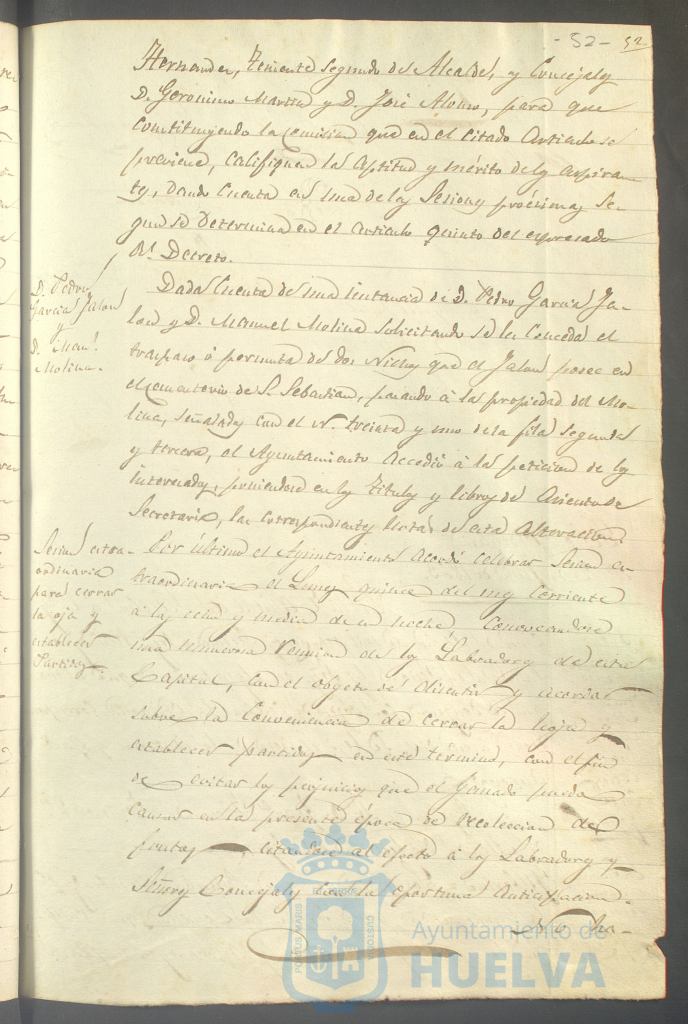 - 52 - 52.
Hernandez, Teniente segundo de Alcalde, y Concejales
D. Geronimo Martin y D. José Alonso, para que
constituyendo la comision que en el citado Articulo se
previene, califiquen la aptitud y mérito de los aspiran-
tes, dando cuenta en una de las Sesiones procsimas se-
gun se determina en el articulo quinto del espresado
Rl. Decreto.
D. Pedro
Garcia Jalon
y
D. Man.l
Molina.
Dada cuenta de una instancia de D. Pedro Garcia Ja-
lon y D. Manuel Molina solicitando se les conceda el
traspaso ó permuta de dos Nichos que el Jalon posee en
el Cementerio de S. Sebastian, pasando á la propiedad del Mo-
lina, señalados con el N. treinta y uno de la fila segunda
y tercera, el Ayuntamiento accedió á la peticion de los
interesados, poniendose en los titulos y libros de Asiento de
Secretaria, las correspondientes notas de esta alteracion.
Sesion estra-
ordinaria
para cerrar
la oja y
establecer
Partidos.
Por último el Ayuntamiento acordó celebrar Sesion es-
traordinaria el Lunes quince del mes corriente
á las ocho y media de su noche convocandose
una numerosa reunion de los Labradores de esta
Capital, con el objeto de discutir y acordar
sobre la conveniencia de cerrar la hoja y
establecer partidos en este término, con el fin
de evitar los perjuicios que el ganado pueda
causar en la presente época de recoleccion de
frutos, citandose al efecto á los Labradores y
Señores Concejales con la oportuna anticipacion.
PORTUS MARIS
CUSTODIA
Ayuntamiento de
HUELVA